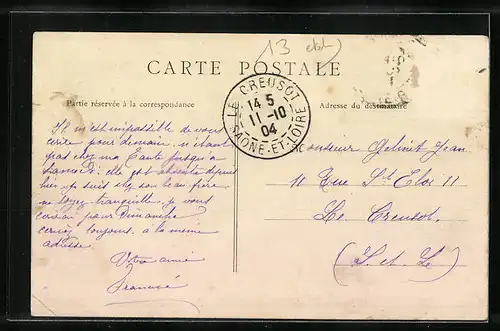 13
CARTE POSTALE
Partie réservée à la correspondance
Adresse du destinataire
LE CREUSOT
14 5
11 -10
04
SAONE-ET-LOIRE
Il m'est impossible de vous
écrire pour demain, n'étant
pas chez ma Tante jusqu'à
Samedi. elle est absente depuis
hier, suis chez son beau frère
soyez tranquille, je vous
pour Dimanche
toujours, à la même
adresse.
Votre amie
Monsieur Jean
11 Rue St Eloi 11
Le Creusot.
(S. et L.)